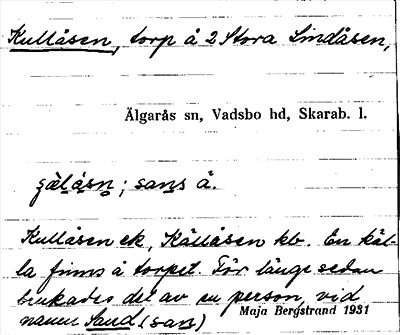 Kullåsen, torp å 2 Stora Lindåsen,
Älgarås sn, Vadsbo hd, Skarab. l.
sans å.
Kullåsen ek, Källåsen kb. En käl-
la finns å torpet. För länge sedan
brukades det av en person, vid
namn Sand (san)
Maja Bergstrand 1931